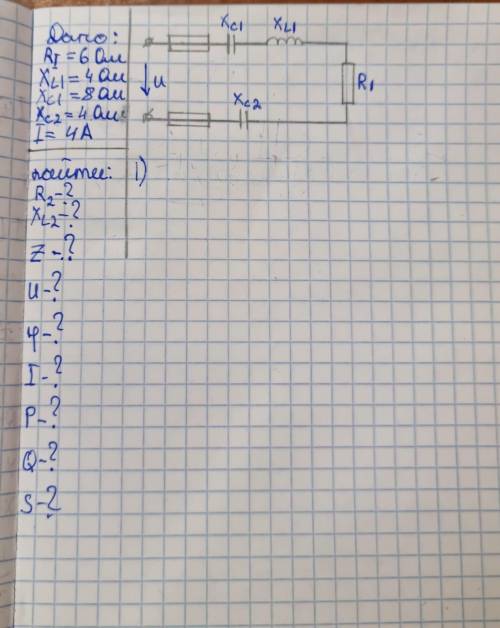 Дано:
R1 = 6 Ом
XL1 = 4 Ом
XC1 = 8 Ом
XC2 = 4 Ом
I = 4 А
найти:
R2 - ?
XL2 - ?
Z - ?
U - ?
φ - ?
I - ?
P - ?
Q - ?
S - ?
1)
XC1
XL1
U
R1
XC2